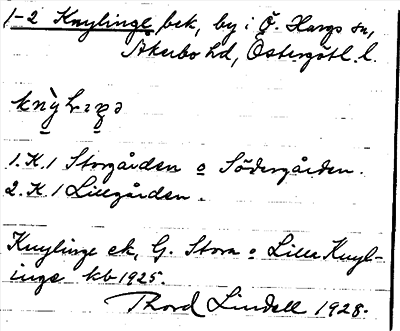 1-2 Knylinge bek, by i Ö. Hargs sn,
Åkerbo hd, Östergötl. l.
1. K. 1 Storgården o Södergården.
2. K. 1 Lillgården.
Knylinge ek, G. Stora o Lilla Knyl-
inge kb 1925.
Thord Lindell 1928.